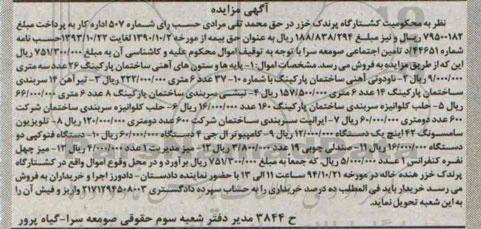 آگهی مزایده
نظر به محکومیت کشتارگاه پرندک خزر در حق محمد تقی مرادی حسب رای شماره ۵۰۷ اداره کار به پرداخت مبلغ
۷۹۵۰۰۱۸۲ ریسال و نیز مبلغ ۱۸۸/۸۳۸/۲۹۴ ریال به عنوان حق بیمه از مورخه ۱۳۹۰/۱۰/۲ لغایت ۱۳۹۳/۱۰/۲۲ حسب نامه
شماره ۴۴۶۵۱/د تامین اجتماعی صومعه سرا با توجه به توقیف اموال محکوم علیه و کاشناسی آن به مبلغ ۷۵۱/۳۰۰/۰۰۰ ریال
این که از طریق مزایده به فروش می رسد. مشخصات اموال: ۱- پایه ها و ستون های آهنی ساختمان پارکینگ ۲۶ عدد سه متری
۹/۰۰۰/۰۰۰ ریال ۲- ناودونی آهنی ساختمان پارکینگ با شماره ۱۰- ۳۷ عدد ۶ متری ۲۲۲/۰۰۰/۰۰۰ ریال ۳- تیر آهن ۱۴ سربندی
ساختمان پارکینگ ۱۴ عدد ۶ متری ۱۵۷/۵۰۰/۰۰۰ ریال ۴- نبشی سربندی ساختمان پارکینگ ۸ عدد ۶ متری ۶۶/۰۰۰/۰۰۰
ریال ۵- حلب گلوانیزه سربندی ساختمان پارکینگ ۱۶۰ عدد ۱۶/۰۰۰/۰۰۰ ریال ۶- حلب گلوانیزه سربندی ساختمان شرکت
۶۰۰ عدد دومتری ۶۰/۰۰۰/۰۰۰ ریال ۷- ایرانیت سربندی ساختمان شرکت ۶۰۰ عدد دومتری ۱۲۰/۰۰۰/۰۰۰ ریال ۸- تلویزیون
سامسونگ ۴۲ اینچ یک دستگاه ۱۲/۰۰۰/۰۰۰ ریال ۹- کامپیوتر ال جی ۴ دستگاه ۶۰/۰۰۰/۰۰۰ ریال ۱۰- دستگاه فتوکپی دو
دستگاه ۱۶/۰۰۰/۰۰۰ ریال ۱۱- صندلی چوبی ۱۹ عدد ۳/۸۰۰/۰۰۰ ریال ۱۲- مبل راحتی یک دست ۱ عدد ۴/۰۰۰/۰۰۰ ریال ۱۳- میز چهل
نفره کنفرانس ۱ عدد ۵/۰۰۰/۰۰۰ ریال که جمعا به مبلغ ۷۵۱/۳۰۰/۰۰۰ ریال برآورد و در محل وقوع اموال واقع در کشتارگاه
پرندک خزر هنده خاله در مورخه ۹۴/۱۰/۲۱ از ساعت ۱۱ الی ۱۳ با حضور نماینده دادستان - دادورز اجرا و خریداران به فروش
می رسد خریدار باید فی المطلب ده درصد خریداری را به حساب سپرده دادگستری ۲۱۷۱۲۹۴۵۰۸۰۰۳ واریز و فیش آن را
به این شعبه تحویل نماید.
ح ۳۸۴۴ مدیر دفتر شعبه سوم حقوقی صومعه سرا-گیاه پرور